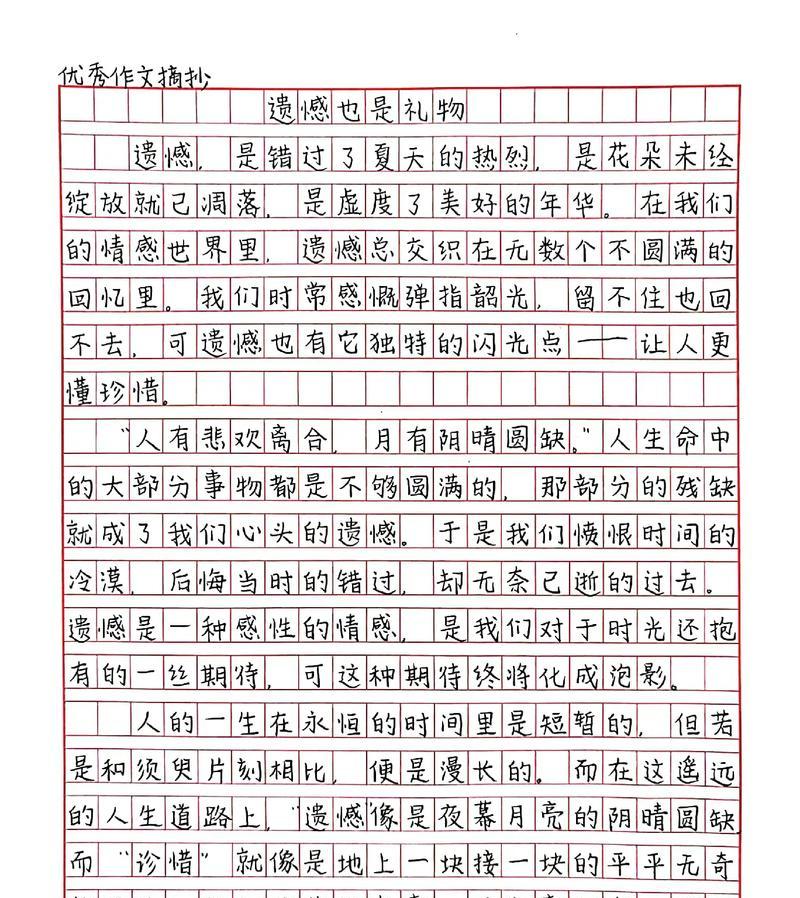 优秀作文摘抄
遗憾也是礼物
遗憾，是错过了夏天的热烈，是花朵未经
绽放就已凋落，是虚度了美好的年华。在我们
的情感世界里，遗憾总交织在无数个不圆满的
回忆里。我们时常感慨弹指韶光，留不住也回
不去，可遗憾也有它独特的闪光点——让人更
懂珍惜。
“人有悲欢离合，月有阴晴圆缺。”人生命中
的大部分事物都是不够圆满的，那部分的残缺
就成了我们心头的遗憾。于是我们愤恨时间的
冷漠，后悔当时的错过，却无奈已逝的过去。
遗憾是一种感性的情感，是我们对于时光还抱
有的一丝期待，可这种期待终将化成泡影。
人的一生在永恒的时间里是短暂的，但若
是和须臾片刻相比，便是漫长的。而在这遥远
的人生道路上，“遗憾”像是夜幕月亮的阴晴圆缺
而“诊惜”就像是地上一块接一块的平平无奇